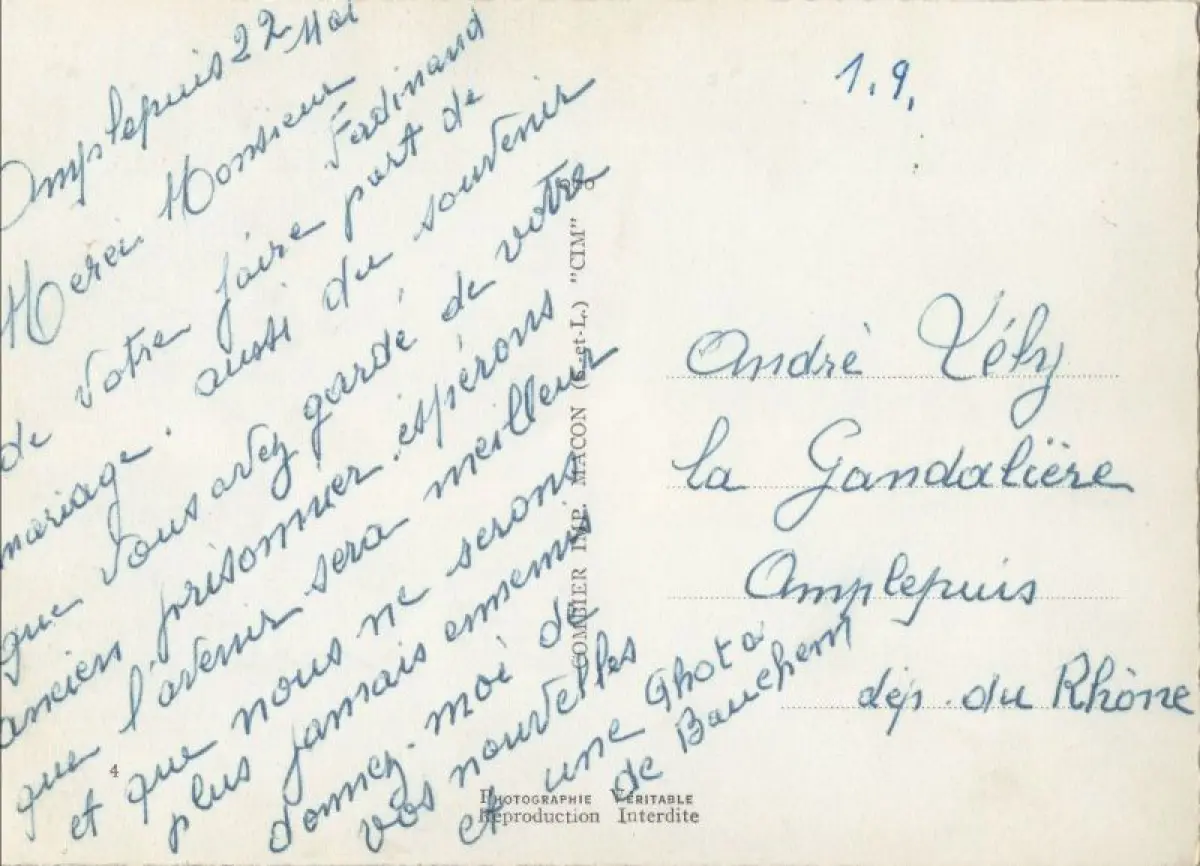 Amplepuis 22 Mai
Merci Monsieur Ferdinand
de votre faire part de
mariage. aussi du souvenir
que vous avez gardé de votre
ancien prisonnier. espérons
que l'avenir sera meilleur
et que nous ne serons
plus jamais ennemis
donnez-moi de
vos nouvelles
et une Photo
de Bauchem
4
COMBIER IMP. MACON (S.-et-L.) "CIM"
PHOTOGRAPHIE VÉRITABLE
Reproduction Interdite
1.9.
André
la Gandalière
Amplepuis
dép. du Rhône